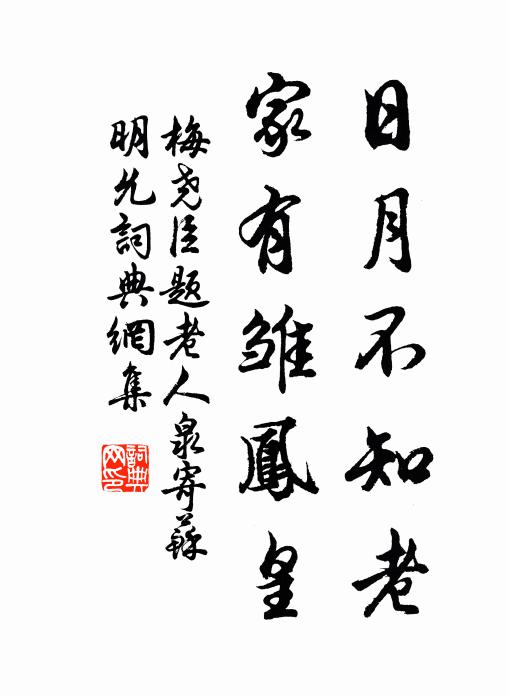 日月不知老
家有雏鳳皇
梅尧臣題老人泉寄蘇
明允詞典網集
詞典
网印